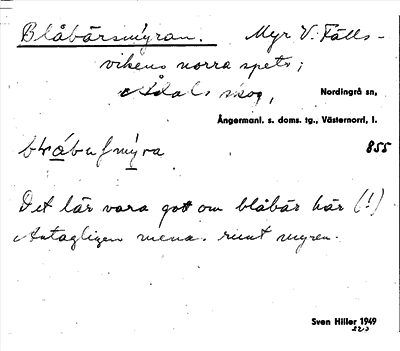 Blåbärsmyran. Myr V. Fälls-
vikens norra spets;
Ådals skog, Nordingrå sn,
Ångermanl. s. doms. tg., Västernorrl, l.
855
Det lär vara gott om blåbär här (!)
Antagligen mena. runt myren.
Sven Hiller 1949